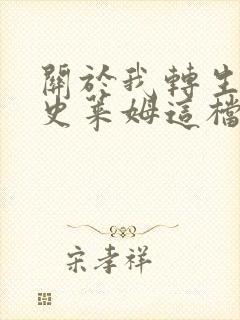 關於我轉生
史萊姆這檔
宋孝祥